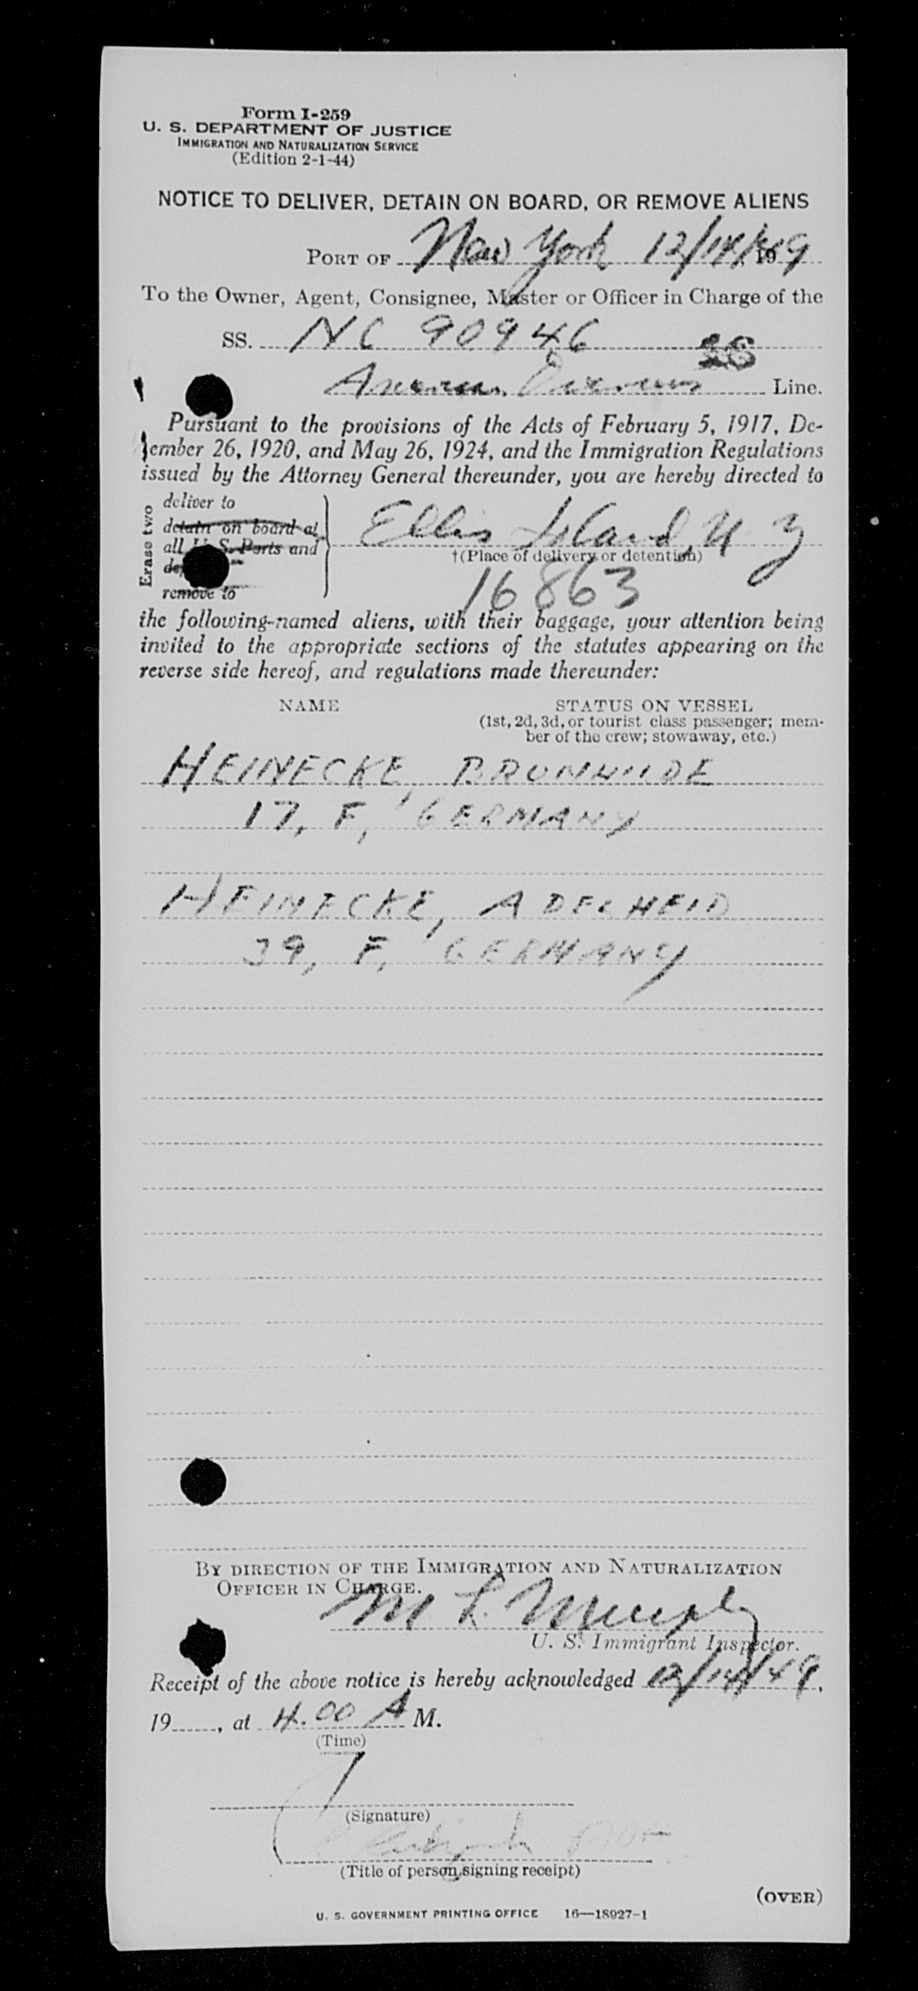 Form I-259
U. S. DEPARTMENT OF JUSTICE
IMMIGRATION AND NATURALIZATION SERVICE
(Edition 2-1-44)
NOTICE TO DELIVER, DETAIN ON BOARD, OR REMOVE ALIENS
PORT OF New York 12/14/49
To the Owner, Agent, Consignee, Master or Officer in Charge of the
SS. NC 90946
Line.
Pursuant to the provisions of the Acts of February 5, 1917, De-
cember 26, 1920, and May 26, 1924, and the Immigration Regulations
issued by the Attorney General thereunder, you are hereby directed to
Erase two
deliver to
detain on board at
all U. S. Ports and
remove to
Ellis Island, N Y
†(Place of delivery or detention)
16863
the following-named aliens, with their baggage, your attention being
invited to the appropriate sections of the statutes appearing on the
reverse side hereof, and regulations made thereunder:
NAME STATUS ON VESSEL
(1st, 2d, 3d, or tourist class passenger; mem-
ber of the crew; stowaway, etc.)
HEINECKE, BRUNHILDE
17, F, GERMANY
HEINECKE, ADELHEID
39, F, GERMANY
BY DIRECTION OF THE IMMIGRATION AND NATURALIZATION
OFFICER IN CHARGE.
M L. Murphy
U. S. Immigrant Inspector.
Receipt of the above notice is hereby acknowledged 12/14/49,
19, at 4.00 A M.
(Time)
(Signature)
(Title of person signing receipt)
(OVER)
U. S. GOVERNMENT PRINTING OFFICE 16—18927-1